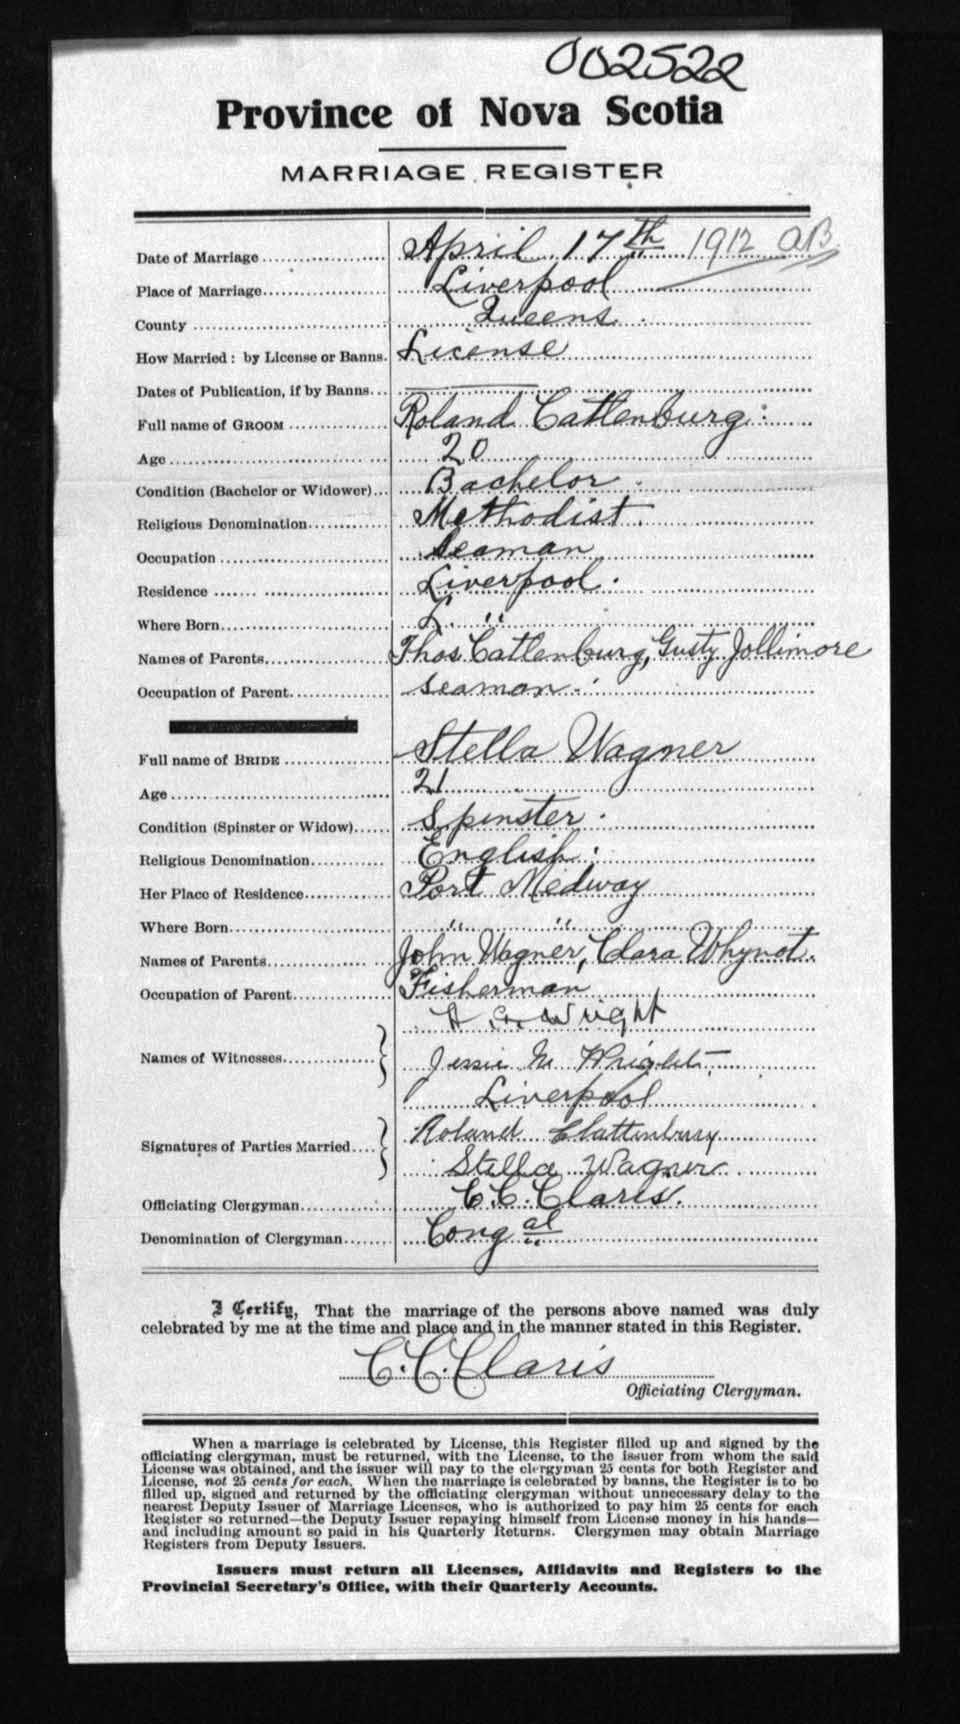 002522
Province of Nova Scotia
MARRIAGE REGISTER
Date of Marriage April 17th 1912 AB
Place of Marriage Liverpool
County Queens
How Married: by License or Banns. License
Dates of Publication, if by Banns
Full name of GROOM Roland Cattenburg
Age 20
Condition (Bachelor or Widower) Bachelor
Religious Denomination Methodist
Occupation Seaman
Residence Liverpool
Where Born L. "
Names of Parents Thos. Cattenburg, Gusty Jollimore
Occupation of Parent seaman
Full name of BRIDE Stella Wagner
Age 21
Condition (Spinster or Widow) Spinster
Religious Denomination English
Her Place of Residence Port Medway
Where Born " "
Names of Parents John Wagner, Clara Whynot.
Occupation of Parent Fisherman
Wright
Names of Witnesses Jessie M Wright
Liverpool
Roland Clattenburg
Signatures of Parties Married
Stella Wagner
Officiating Clergyman C. C. Claris.
Denomination of Clergyman Congal
I Certify, That the marriage of the persons above named was duly
celebrated by me at the time and place and in the manner stated in this Register.
C. C. Claris
Officiating Clergyman.
When a marriage is celebrated by License, this Register filled up and signed by the
officiating clergyman, must be returned, with the License, to the issuer from whom the said
License was obtained, and the issuer will pay to the clergyman 25 cents for both Register and
License, not 25 cents for each. When the marriage is celebrated by banns, the Register is to be
filled up, signed and returned by the officiating clergyman without unnecessary delay to the
nearest Deputy Issuer of Marriage Licenses, who is authorized to pay him 25 cents for each
Register so returned—the Deputy Issuer repaying himself from License money in his hands—
and including amount so paid in his Quarterly Returns. Clergymen may obtain Marriage
Registers from Deputy Issuers.
Issuers must return all Licenses, Affidavits and Registers to the
Provincial Secretary's Office, with their Quarterly Accounts.